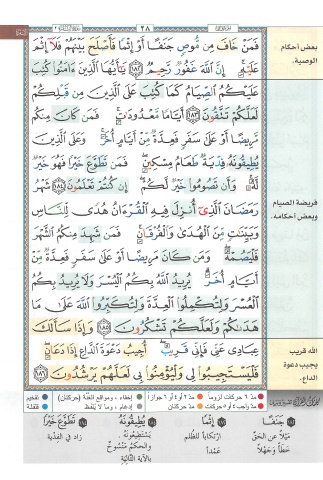 ٢٨
بعض أحكام
الوصية.
فَمَنْ خَافَ مِن مُّوصٍ جَنَفًا أَوْ إِثْمًا فَأَصْلَحَ بَيْنَهُمْ فَلَآ إِثْمَ
عَلَيْهِ إِنَّ ٱللَّهَ غَفُورٌ رَّحِيمٌ ١٨٢ يَٰٓأَيُّهَا ٱلَّذِينَ ءَامَنُوا۟ كُتِبَ
عَلَيْكُمُ ٱلصِّيَامُ كَمَا كُتِبَ عَلَى ٱلَّذِينَ مِن قَبْلِكُمْ
لَعَلَّكُمْ تَتَّقُونَ ١٨٣ أَيَّامًا مَّعْدُودَٰتٍ فَمَن كَانَ مِنكُم
مَّرِيضًا أَوْ عَلَىٰ سَفَرٍ فَعِدَّةٌ مِّنْ أَيَّامٍ أُخَرَ وَعَلَى ٱلَّذِينَ
يُطِيقُونَهُۥ فِدْيَةٌ طَعَامُ مِسْكِينٍ فَمَن تَطَوَّعَ خَيْرًا فَهُوَ خَيْرٌ
لَّهُۥ وَأَن تَصُومُوا۟ خَيْرٌ لَّكُمْ إِن كُنتُمْ تَعْلَمُونَ ١٨٤ شَهْرُ
فريضة الصيام
وبعض أحكامه.
رَمَضَانَ ٱلَّذِىٓ أُنزِلَ فِيهِ ٱلْقُرْءَانُ هُدًى لِّلنَّاسِ
وَبَيِّنَٰتٍ مِّنَ ٱلْهُدَىٰ وَٱلْفُرْقَانِ فَمَن شَهِدَ مِنكُمُ ٱلشَّهْرَ
فَلْيَصُمْهُ وَمَن كَانَ مَرِيضًا أَوْ عَلَىٰ سَفَرٍ فَعِدَّةٌ مِّنْ
أَيَّامٍ أُخَرَ يُرِيدُ ٱللَّهُ بِكُمُ ٱلْيُسْرَ وَلَا يُرِيدُ بِكُمُ
ٱلْعُسْرَ وَلِتُكْمِلُوا۟ ٱلْعِدَّةَ وَلِتُكَبِّرُوا۟ ٱللَّهَ عَلَىٰ مَا
هَدَىٰكُمْ وَلَعَلَّكُمْ تَشْكُرُونَ ١٨٥ وَإِذَا سَأَلَكَ
الله قريب
يجيب دعوة
الداع.
عِبَادِى عَنِّى فَإِنِّى قَرِيبٌ أُجِيبُ دَعْوَةَ ٱلدَّاعِ إِذَا دَعَانِ
فَلْيَسْتَجِيبُوا۟ لِى وَلْيُؤْمِنُوا۟ بِى لَعَلَّهُمْ يَرْشُدُونَ ١٨٦
مدّ ٦ حركات لزوماً مدّ ٢ أو ٤ أو ٦ جوازاً إخفاء، ومواقع الغنّة (حركتان) تفخيم
مدّ واجب ٤ أو ٥ حركات مدّ حركتان إدغام، وما لا يُلفظ قلقلة
جَنَفًا
مَيْلاً عن الحَقِّ
خطأً وجَهْلاً
إِثْمًا
ارْتِكَاباً للظُّلم
عَمْداً
يُطِيقُونَهُ
يَسْتَطِيعُونَهُ .
والحكم مَنْسُوخٌ
بالآية التَّالية
تَطَوَّعَ خَيْرًا
زاد في الفِدْية